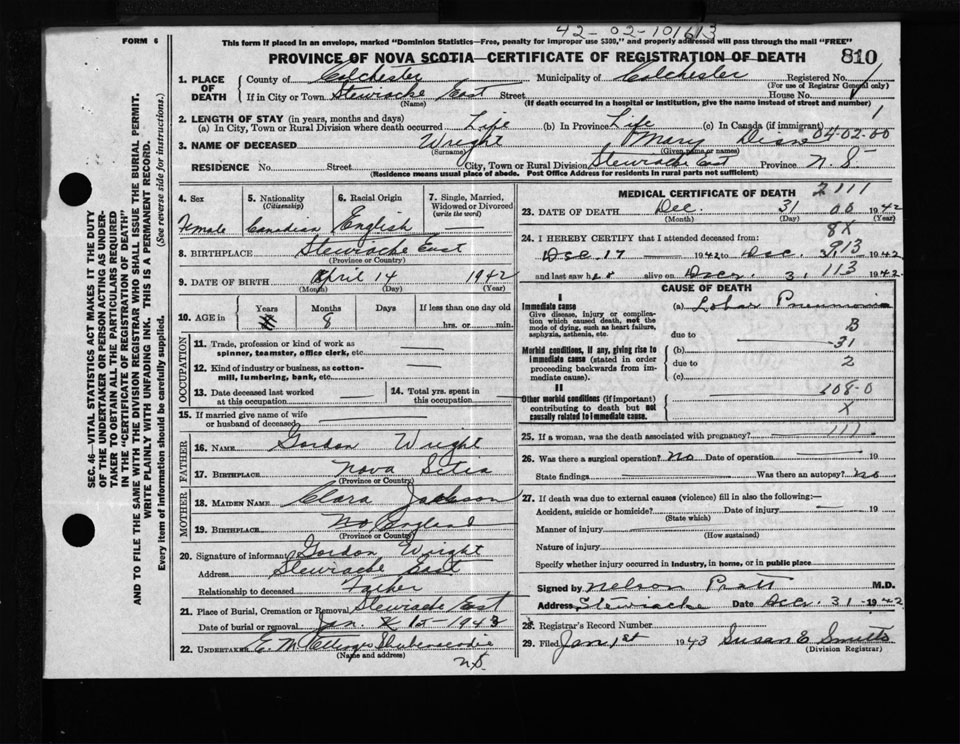 42-02-101613
FORM 6
This form if placed in an envelope, marked "Dominion Statistics—Free, penalty for improper use $300," and properly addressed will pass through the mail "FREE"
PROVINCE OF NOVA SCOTIA—CERTIFICATE OF REGISTRATION OF DEATH 810
1. PLACE OF DEATH County of Colchester Municipality of Colchester Registered No. 1
(For use of Registrar General only)
If in City or Town Stewiacke East Street House No.
(Name) (If death occurred in a hospital or institution, give the name instead of street and number)
2. LENGTH OF STAY (in years, months and days)
(a) In City, Town or Rural Division where death occurred Life (b) In Province Life (c) In Canada (if immigrant)
04-02-00
3. NAME OF DECEASED Wright Mary
(Surname) (Given name or names)
RESIDENCE No. Street City, Town or Rural Division Stewiacke East Province N.S.
(Residence means usual place of abode. Post Office Address for residents in rural parts not sufficient)
4. Sex Female
5. Nationality (Citizenship) Canadian
6. Racial Origin English
7. Single, Married, Widowed or Divorced (write the word) —
8. BIRTHPLACE Stewiacke East
(Province or Country)
9. DATE OF BIRTH April 14 1942
(Month) (Day) (Year)
10. AGE in Years Months Days If less than one day old
8 hrs. or min.
OCCUPATION
11. Trade, profession or kind of work as spinner, teamster, office clerk, etc. —
12. Kind of industry or business, as cotton-mill, lumbering, bank, etc. —
13. Date deceased last worked at this occupation —
14. Total yrs. spent in this occupation —
15. If married give name of wife or husband of deceased —
FATHER
16. NAME Gordon Wright
17. BIRTHPLACE Nova Sctia
MOTHER
18. MAIDEN NAME Clara Jackson
19. BIRTHPLACE England
(Province or Country)
20. Signature of informant Gordon Wright
Address Stewiacke East
Relationship to deceased Father
21. Place of Burial, Cremation or Removal Stewiacke East
Date of burial or removal Jan. 1943
22. UNDERTAKER E. M. Shubenacadie
(Name and address)
N.S.
MEDICAL CERTIFICATE OF DEATH
2111
23. DATE OF DEATH Dec. 31 00 1942
(Month) (Day) (Year)
8X
24. I HEREBY CERTIFY that I attended deceased from:
Dec. 17 1942 to Dec. 1942
913
and last saw her alive on Decr. 31 1942
113
CAUSE OF DEATH
I
Immediate cause
Give disease, injury or complication which caused death, not the mode of dying, such as heart failure, asphyxia, asthenia, etc.
(a) Lobar Pneumonia
B
due to
31
Morbid conditions, if any, giving rise to immediate cause (stated in order proceeding backwards from immediate cause).
(b)
due to 2
(c)
II
108-0
Other morbid conditions (if important) contributing to death but not causally related to immediate cause.
X
25. If a woman, was the death associated with pregnancy? 111
26. Was there a surgical operation? No Date of operation 19
State findings Was there an autopsy? No
27. If death was due to external causes (violence) fill in also the following:—
Accident, suicide or homicide? Date of injury — 19
(State which)
Manner of injury
(How sustained)
Nature of injury
Specify whether injury occurred in industry, in home, or in public place
Signed by Nelson Pratt M.D.
Address Stewiacke Date Decr. 31 1942
28. Registrar's Record Number
29. Filed Jan 1st 1943 Susan E
(Division Registrar)
SEC. 46—VITAL STATISTICS ACT MAKES IT THE DUTY
OF THE UNDERTAKER OR PERSON ACTING AS UNDER-
TAKER TO OBTAIN ALL THE PARTICULARS REQUIRED
IN THE "CERTIFICATE OF REGISTRATION OF DEATH"
AND TO FILE THE SAME WITH THE DIVISION REGISTRAR WHO SHALL ISSUE THE BURIAL PERMIT.
WRITE PLAINLY WITH UNFADING INK. THIS IS A PERMANENT RECORD.
Every item of information should be carefully supplied. (See reverse side for instructions.)